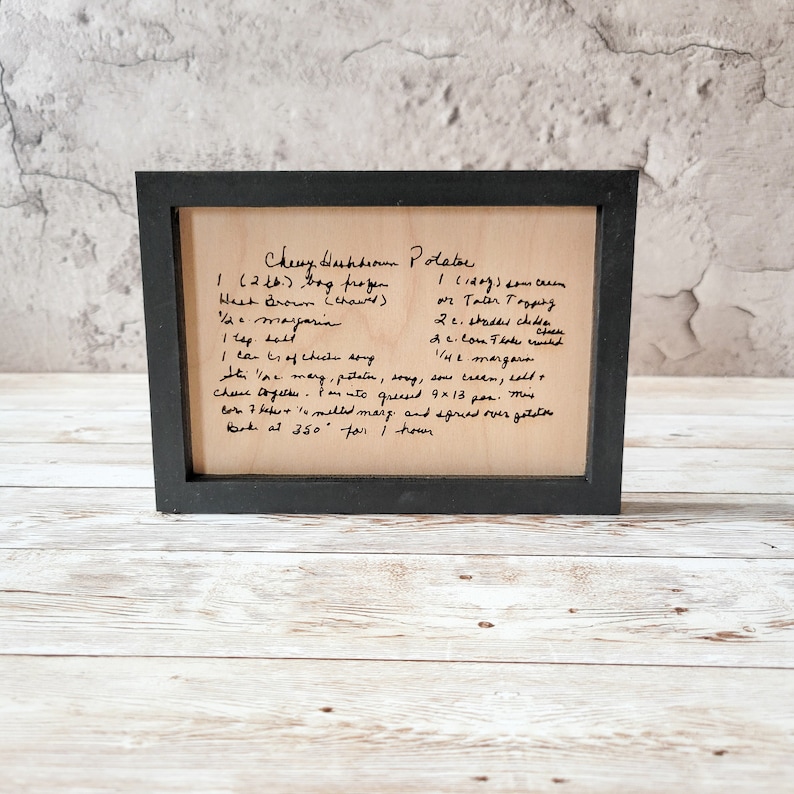 Cheesy Hashbrown Potatoe
1 (2 lb.) bag frozen
Hash Brown (thawed)
1/2 c. margarin
1 tsp. salt
1 can cr of chicken soup
1 (12 oz) sour cream
or Tater Topping
2 c. shredded cheddar cheese
2 c. Corn Flake crushed
1/4 c. margarin
Stir 1/2 c. marg, potatoe, soup, sour cream, salt +
cheese together. Pour into greased 9x13 pan. Mix
Corn Flakes + 1/4 melted marg. and spread over potatoes
Bake at 350° for 1 hour